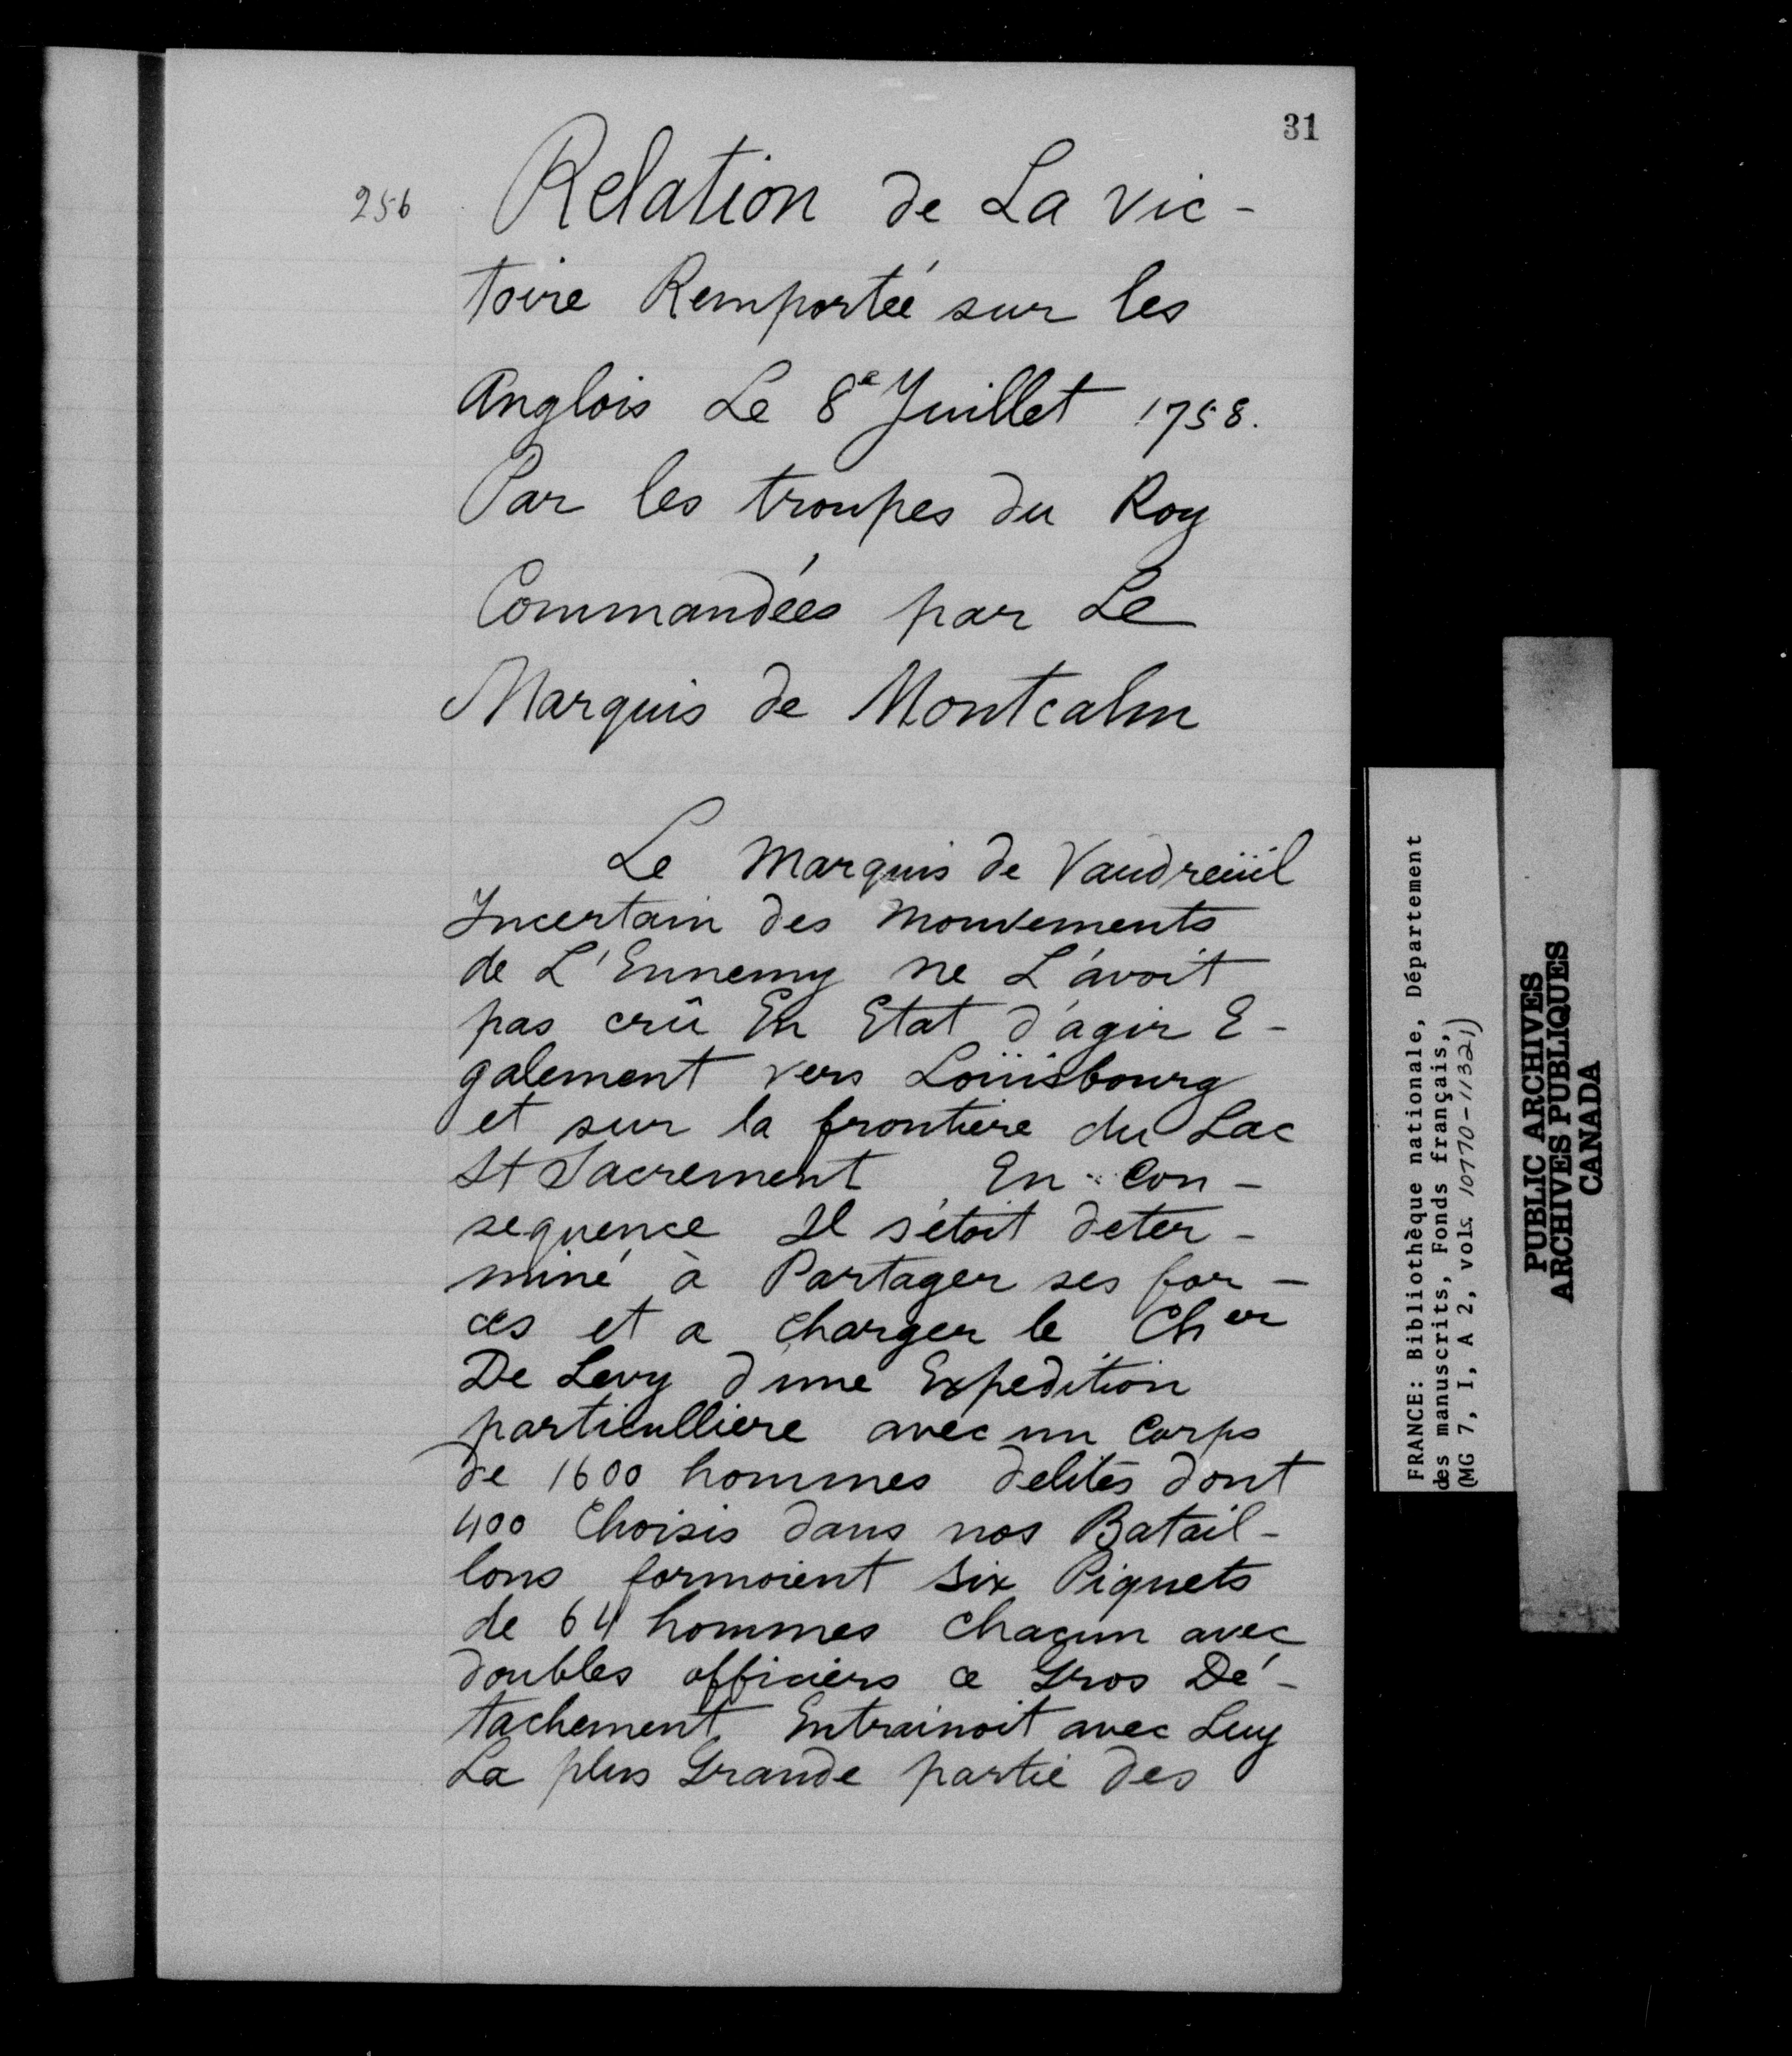 31
256
Relation de La vic-
toire Remportée sur les
Anglois Le 8e Juillet 1758.
Par les troupes du Roy
Commandées par Le
Marquis de Montcalm
Le Marquis de Vaudreüil
Incertain des mouvements
de L'Ennemy ne L'avoit
pas crû En Etat d'agir E-
galement vers Loüisbourg
et sur la frontiere du Lac
St Sacrement En Con-
sequence Il s'étoit deter-
miné à Partager ses for-
ces et a charger le Cher
De Levy d'une Expedition
particulliere avec un Corps
de 1600 hommes delites dont
400 Choisis dans nos Batail-
lons formoient Six Piquets
de 64 hommes chacun avec
doubles officiers ce Gros Dé-
tachement Entrainoit avec Luy
La plus Grande partie des
FRANCE: Bibliothèque nationale, Département
des manuscrits, Fonds français,
(MG 7, I, A 2, vols. 10770-11321)
PUBLIC ARCHIVES
ARCHIVES PUBLIQUES
CANADA